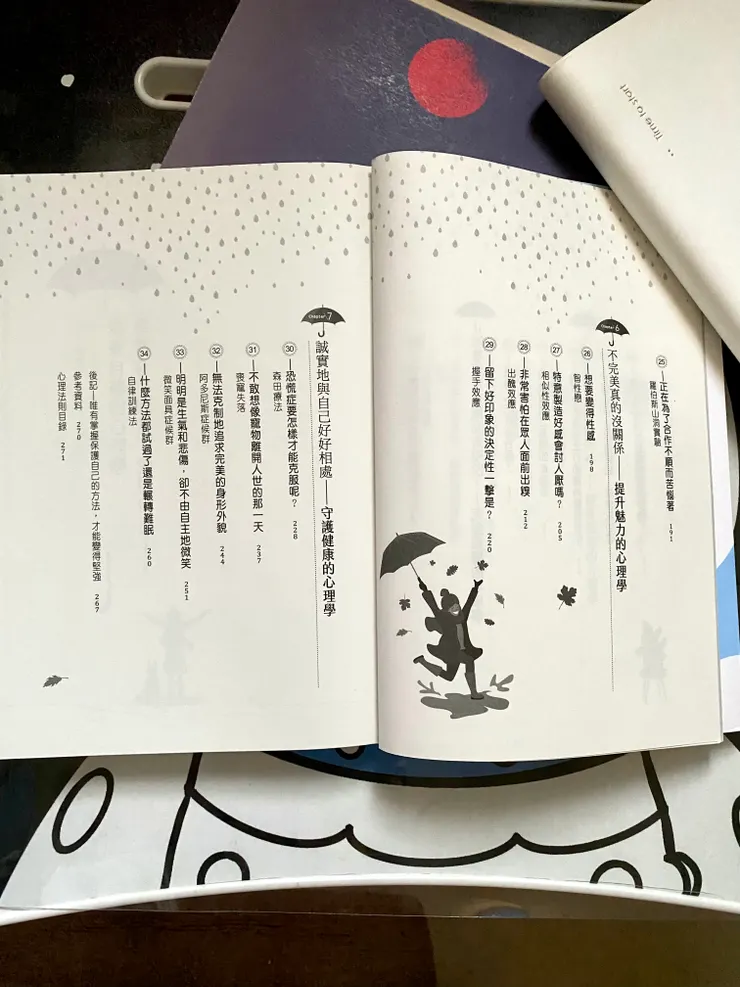 25 — 正在為了合作不順而苦惱著 191
羅伯斯山洞實驗
Chapter. 6
不完美真的沒關係——提升魅力的心理學
26 — 想要變得性感 198
智性戀
27 — 特意製造好感會討人厭嗎？ 205
相似性效應
28 — 非常害怕在眾人面前出糗 212
出醜效應
29 — 留下好印象的決定性一擊是？ 220
握手效應
Chapter. 7
誠實地與自己好好相處——守護健康的心理學
30 — 恐慌症要怎樣才能克服呢？ 228
森田療法
31 — 不敢想像寵物離開人世的那一天 237
喪寵失落
32 — 無法克制地追求完美的身形外貌 244
阿多尼斯症候群
33 — 明明是生氣和悲傷，卻不由自主地微笑 251
微笑面具症候群
34 — 什麼方法都試過了還是輾轉難眠 260
自律訓練法
後記—唯有掌握保護自己的方法，才能變得堅強 267
參考資料 270
心理法則目錄 271
Time to start